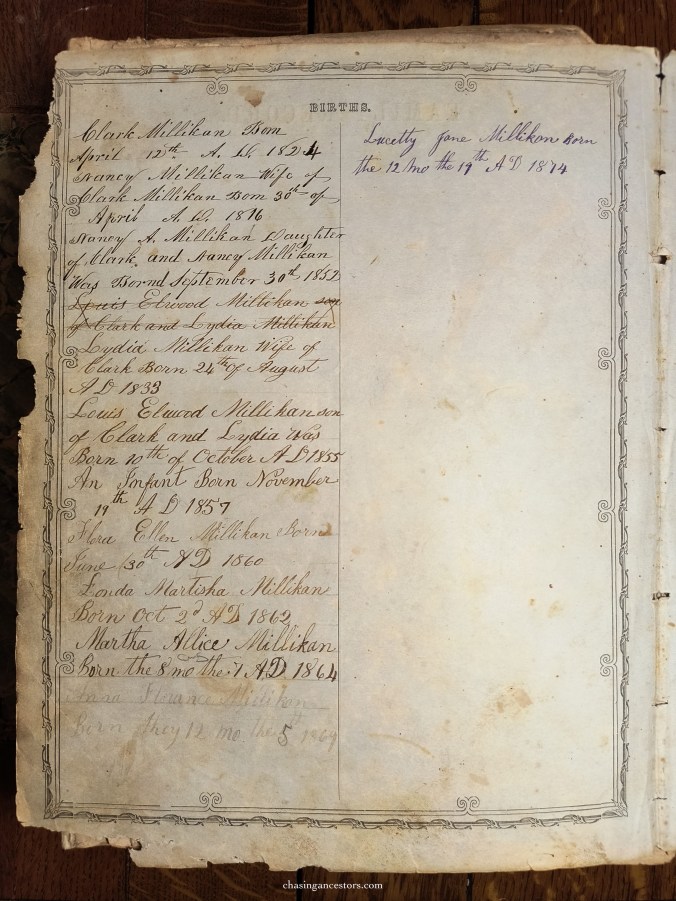 BIRTHS.
Clark Millikan Born
April 12th A. D. 1824
Nancy Millikan Wife of
Clark Millikan Born 30th of
April A. D. 1816
Nancy A. Millikan Daughter
of Clark and Nancy Millikan
Was Bornd September 30th 1852
Louis Elwood Millikan son
of Clark and Lydia Millikan
Lydia Millikan Wife of
Clark Born 24th of August
A D 1833
Louis Elwood Millikan son
of Clark and Lydia Was
Born 10th of October A D 1855
An Infant Born November
19th A D 1857
Flora Ellen Millikan Born
June 30th A D 1860
Londa Martisha Millikan
Born Oct 2d A D 1862
Martha Allice Millikan
Born the 8 mo the 7 A D 1864
Florance Millikan
Born 12 mo the 5 1869
Lucetty Jane Millikan Born
the 12 mo the 19th A D 1874
chasingancestors.com